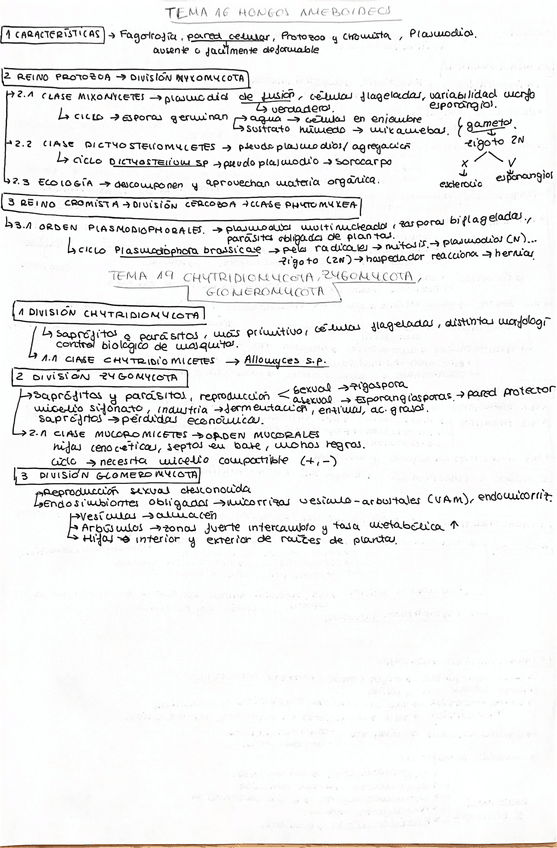 TEMA 16 HONGOS AMEBOIDEOS
1 CARACTERÍSTICAS → Fagotrofía, pared celular, Protozoo y Chromista, Plasmodios.
ausente o fácilmente deformable
2 REINO PROTOZOA → DIVISIÓN MYXOMYCOTA
2.1 CLASE MIXOMYCETES → plasmodios de fusión, células flageladas, variabilidad morfo
↳ verdadero. esporangios.
↳ CICLO → esporas germinan → agua → células en enjambre
↳ sustrato húmedo → mixamebas. (gametos
↓
zigoto 2N
2.2 CLASE DICTYOSTELIOMYCETES → pseudoplasmodios/agregación
↳ ciclo DICTYOSTELIUM SP → pseudoplasmodio → sorocarpo
X V
esclerocio esporangios
2.3 ECOLOGÍA → descomponen y aprovechan materia orgánica.
3 REINO CROMISTA → DIVISIÓN CERCOZOA → CLASE PHYTOMYXEA
↳ 3.1 ORDEN PLASMODIOPHORALES. → plasmodios multinucleados, zoosporas biflageladas.,
parásitos obligados de plantas.
↳ CICLO Plasmodiophora brassicae → pelos radicales → mitosis → plasmodios (N)...
zigoto (2N) → hospedador reacciona → hernias.
TEMA 19 CHYTRIDIOMYCOTA, ZYGOMYCOTA,
GLOMEROMYCOTA
1 DIVISIÓN CHYTRIDIOMYCOTA
↳ Saprófitos o parásitos, más primitivo, células flageladas, distintas morfologí
control biológico de mosquitos.
↳ 1.1 CLASE CHYTRIDIOMICETES → Allomyces s.p.
2 DIVISIÓN ZYGOMYCOTA
↳ Saprófitos y parásitos, reproducción < sexual → zigospora
asexual → Esporangiosporas. → pared protector
micelio sifonado, industria → fermentación, enzimas, ac. grasos.
saprófitos → pérdidas económicas.
↳ 2.1 CLASE MUCOROMICETES → ORDEN MUCORALES
hifas cenocíticas, septos en base, mohos negros.
ciclo → necesita micelio compatible (+,-)
3 DIVISIÓN GLOMEROMYCOTA
Reproducción sexual desconocida
↳ Endosimbiontes obligados → micorrizas vesículo-arbustales (VAM), endomicorriz.
↳ Vesículas → almacén
↳ Arbúsculos → zonas fuerte intercambio y tasa metabólica ↑
↳ Hifas → interior y exterior de raíces de planta.